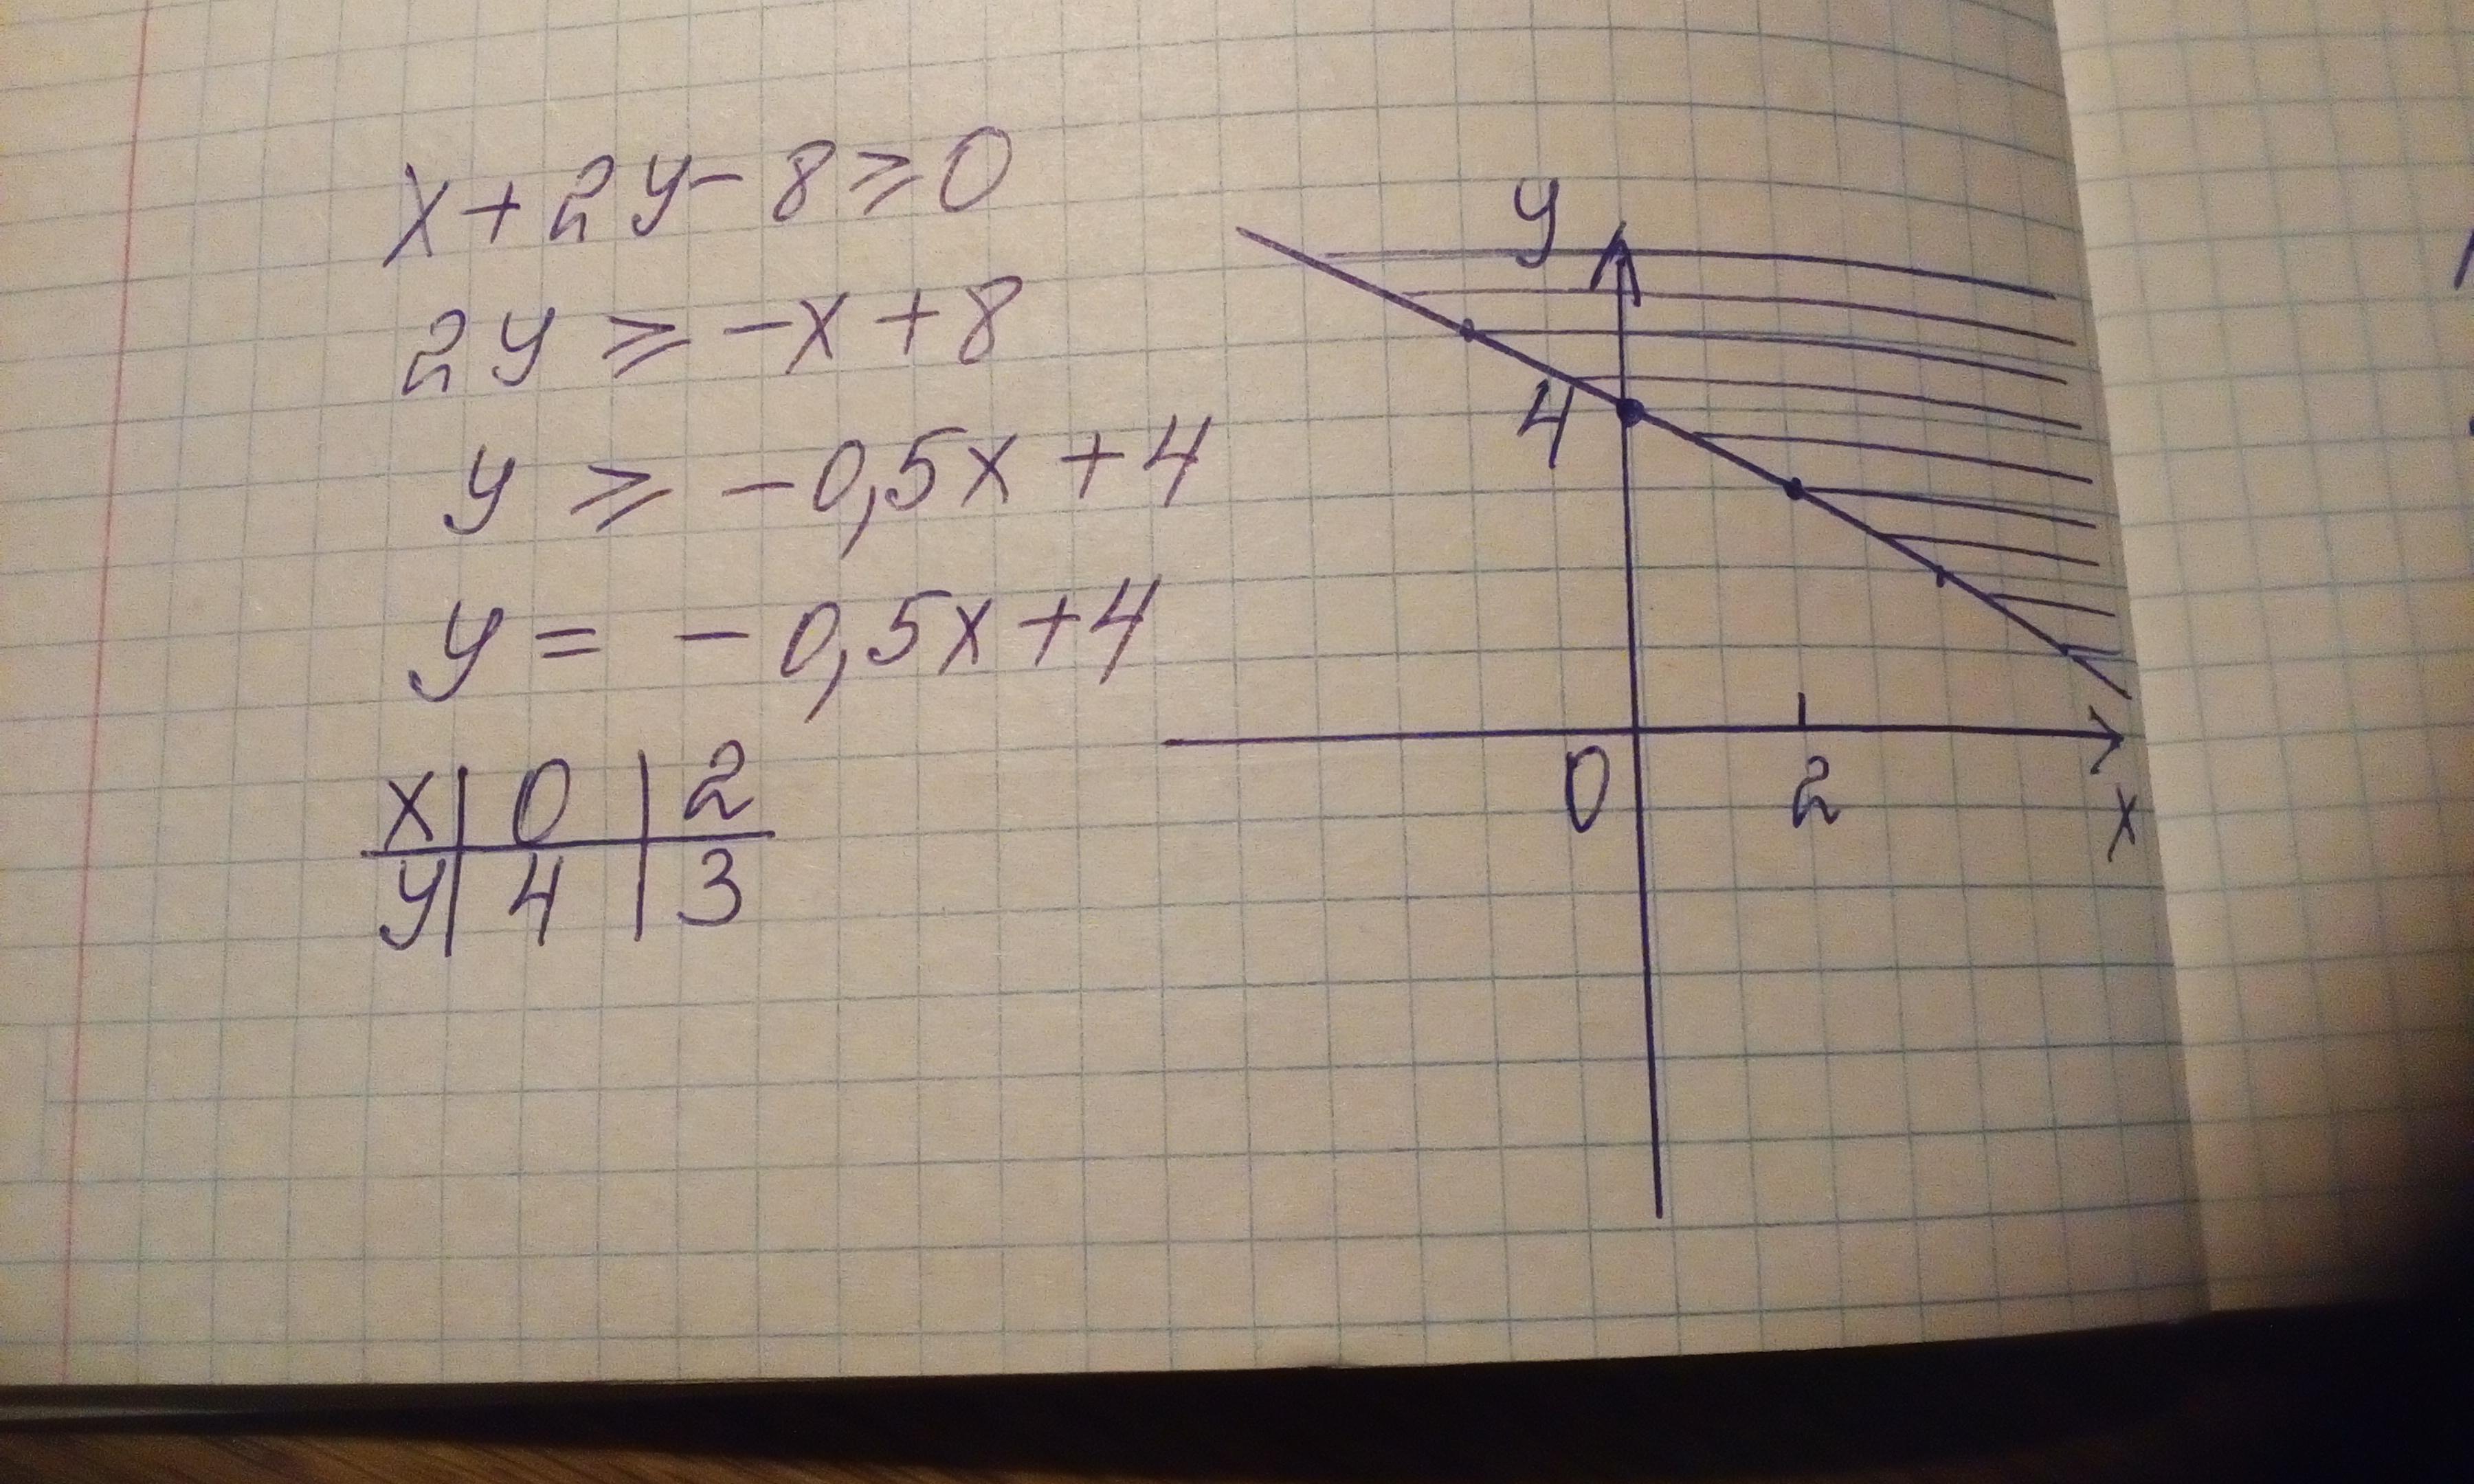 x+2y-8≥0
2y ≥ -x+8
y ≥ -0,5x+4
y = -0,5x+4
x | 0 | 2
y | 4 | 3
y
4
0 2
x